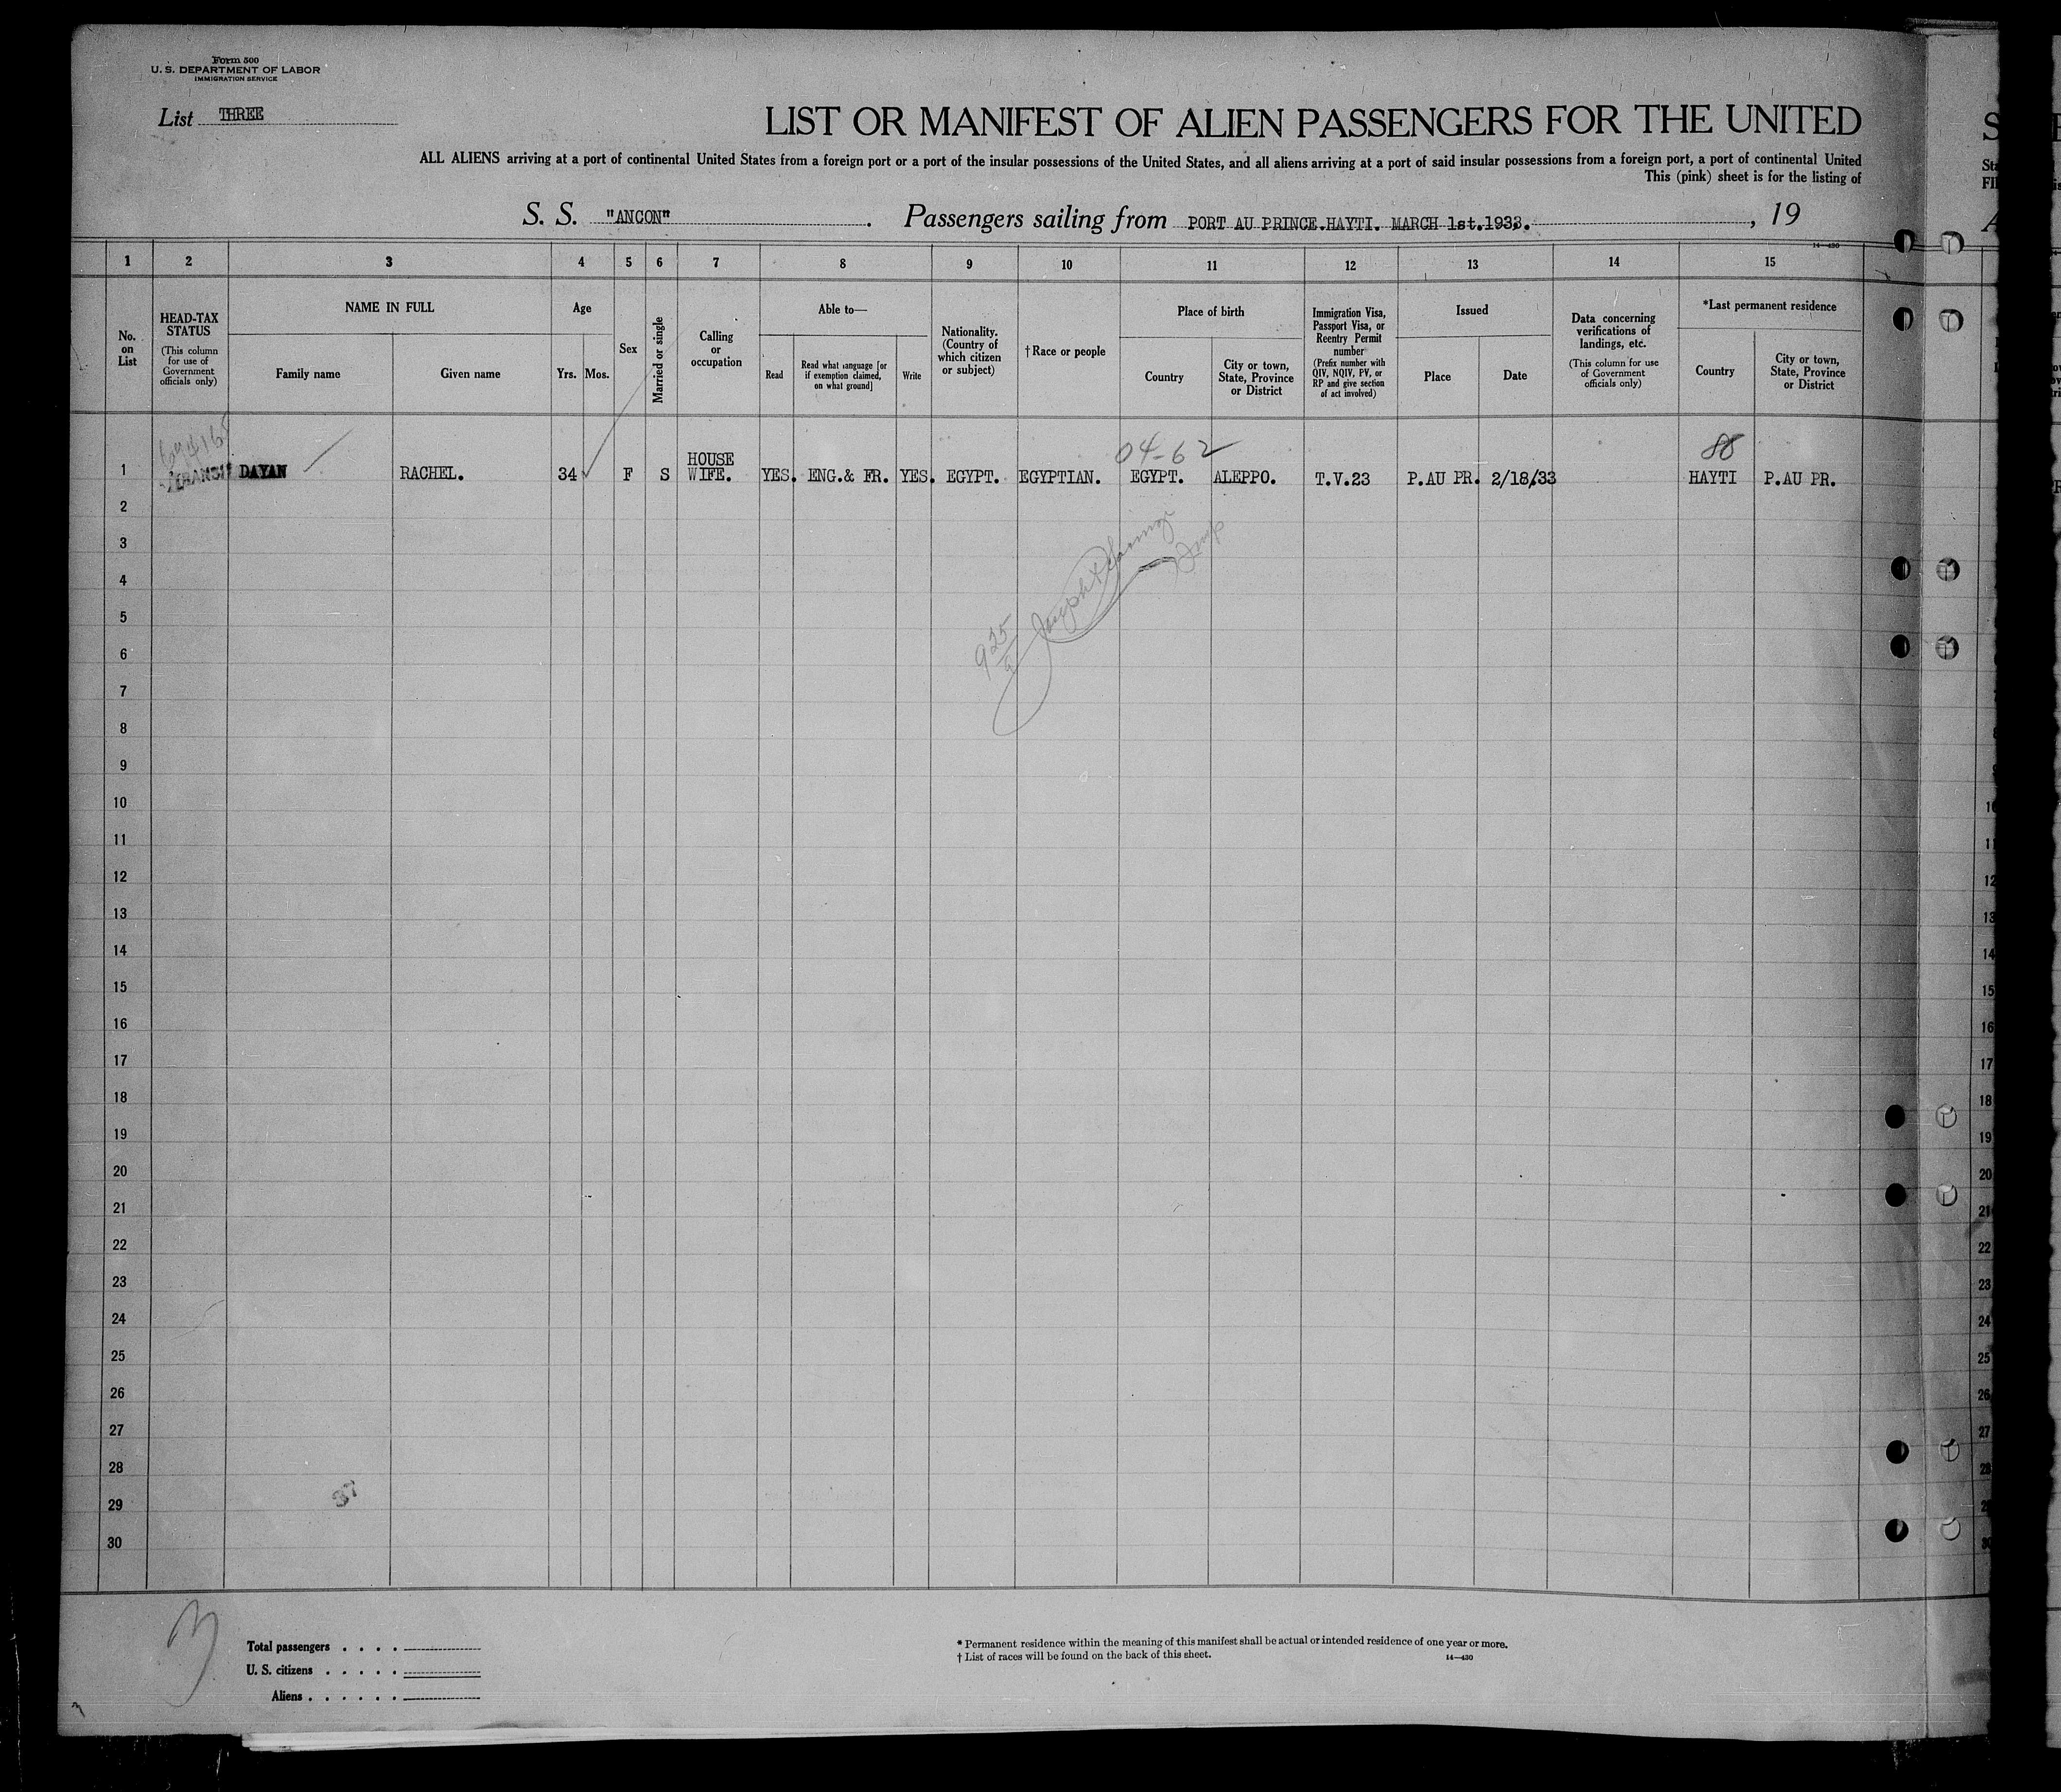 Form 500
U. S. DEPARTMENT OF LABOR
IMMIGRATION SERVICE
List THREE
LIST OR MANIFEST OF ALIEN PASSENGERS FOR THE UNITED
ALL ALIENS arriving at a port of continental United States from a foreign port or a port of the insular possessions of the United States, and all aliens arriving at a port of said insular possessions from a foreign port, a port of continental United
This (pink) sheet is for the listing of
S. S. "ANCON". Passengers sailing from PORT AU PRINCE.HAYTI. MARCH 1st.1933., 19
14—430
1 2 3 4 5 6 7 8 9 10 11 12 13 14 15
No. on List
HEAD-TAX STATUS
(This column for use of Government officials only)
NAME IN FULL
Family name
Given name
Age
Yrs. Mos.
Sex
Married or single
Calling or occupation
Able to—
Read
Read what language [or if exemption claimed, on what ground]
Write
Nationality. (Country of which citizen or subject)
†Race or people
Place of birth
Country
City or town, State, Province or District
Immigration Visa, Passport Visa, or Reentry Permit number
(Prefix number with QIV, NQIV, PV, or RP and give section of act involved)
Issued
Place
Date
Data concerning verifications of landings, etc.
(This column for use of Government officials only)
*Last permanent residence
Country
City or town, State, Province or District
04-62
88
1 DAYAN RACHEL. 34 F S HOUSE WIFE. YES. ENG.& FR. YES. EGYPT. EGYPTIAN. EGYPT. ALEPPO. T.V.23 P.AU PR. 2/18/33 HAYTI P.AU PR.
2
3
4
5
6
7
8
9
10
11
12
13
14
15
16
17
18
19
20
21
22
23
24
25
26
27
28
29
30
37
Total passengers . . . .
U. S. citizens . . . . .
Aliens . . . . . .
* Permanent residence within the meaning of this manifest shall be actual or intended residence of one year or more.
† List of races will be found on the back of this sheet.
14—430